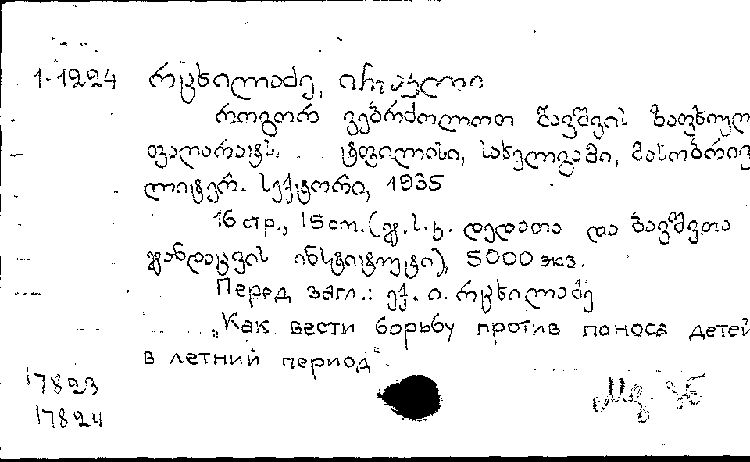 1-1224 რცხილაძე, ისრაელი
როგორ ვებრძოლოთ ბავშვის ზაფხულ
ფაღარათს. ტფილისი, სახელგამი, მასობრივ
ლიტერ. სექტორი, 1935
16 стр., 15 cm. (ჯ.ს.კ. დედათა და ბავშვთა
ჯანდაცვის ინსტიტუტი), 5000 экз.
Перед загл.: ექ. ი. რცხილაძე
"Как вести борьбу против поноса детей
в летний период".
17823
17824